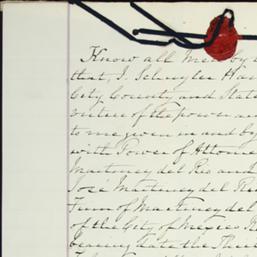 Know all men by
that, I, Schuyler Ham
City County and State
virtue of the power an
to me given and by
with Power of Attorne
Martinez del Rio and
Jose Martinez del Rio
Firm of Martinez del
of the City of Mexico R
bearing date the Thir